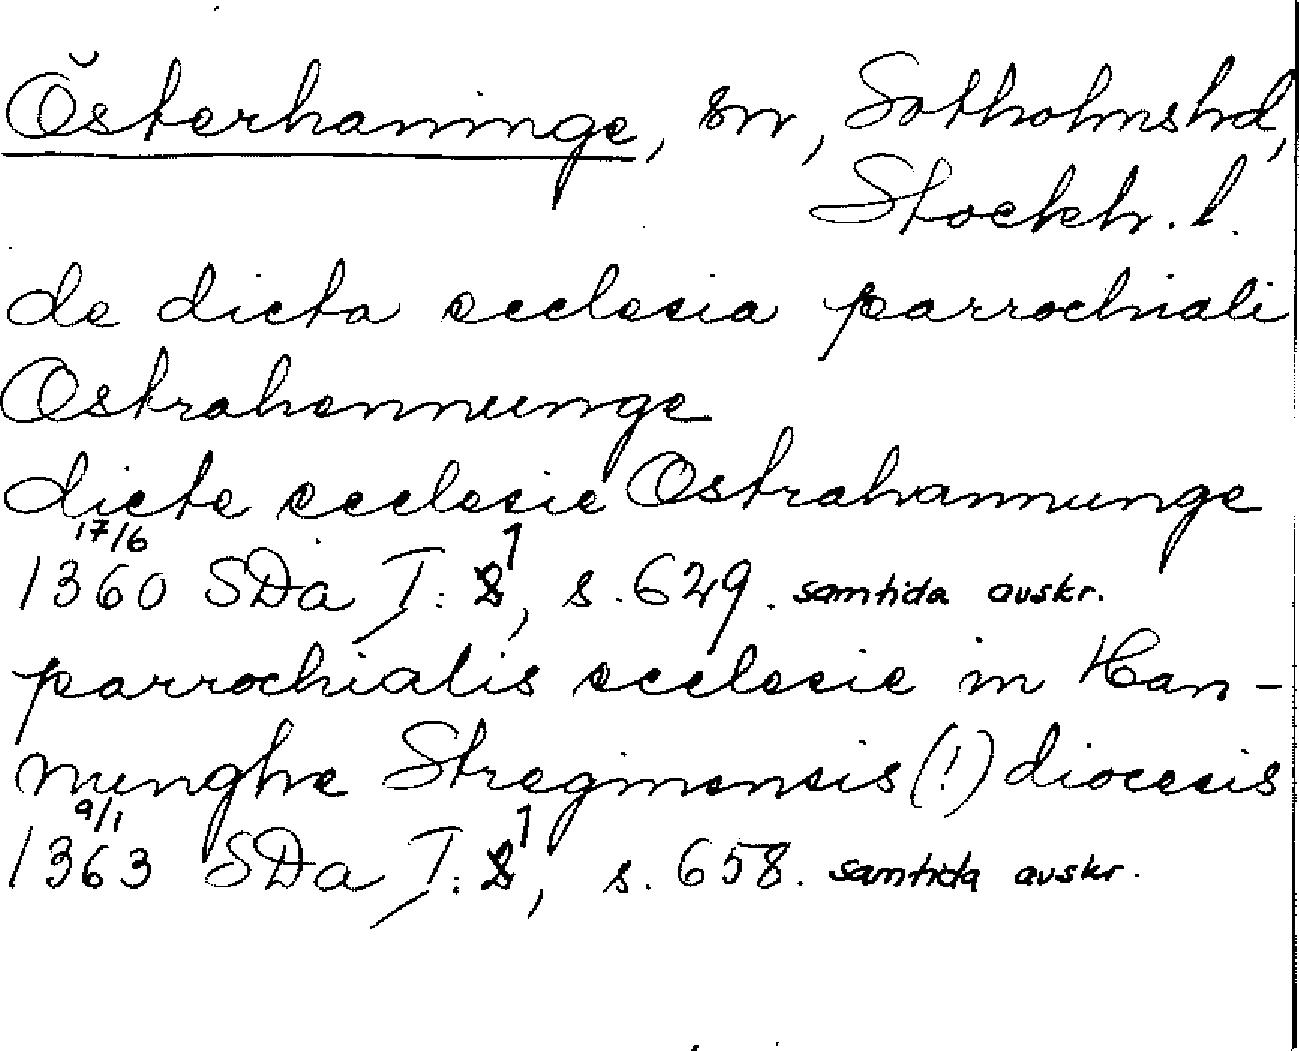 Österhaninge, sn, Sotholmshd,
Stockh. l.
de dicta ecclesia parrochiali
Ostrahennunge
dicte ecclesie Ostrahannunge
17/6
1360 SDa I: 1, s. 629. samtida avskr.
parrochialis ecclesie in Han-
nunghe Streginensis (!) diocesis
9/1
1363 SDa I: 1, s. 658. samtida avskr.